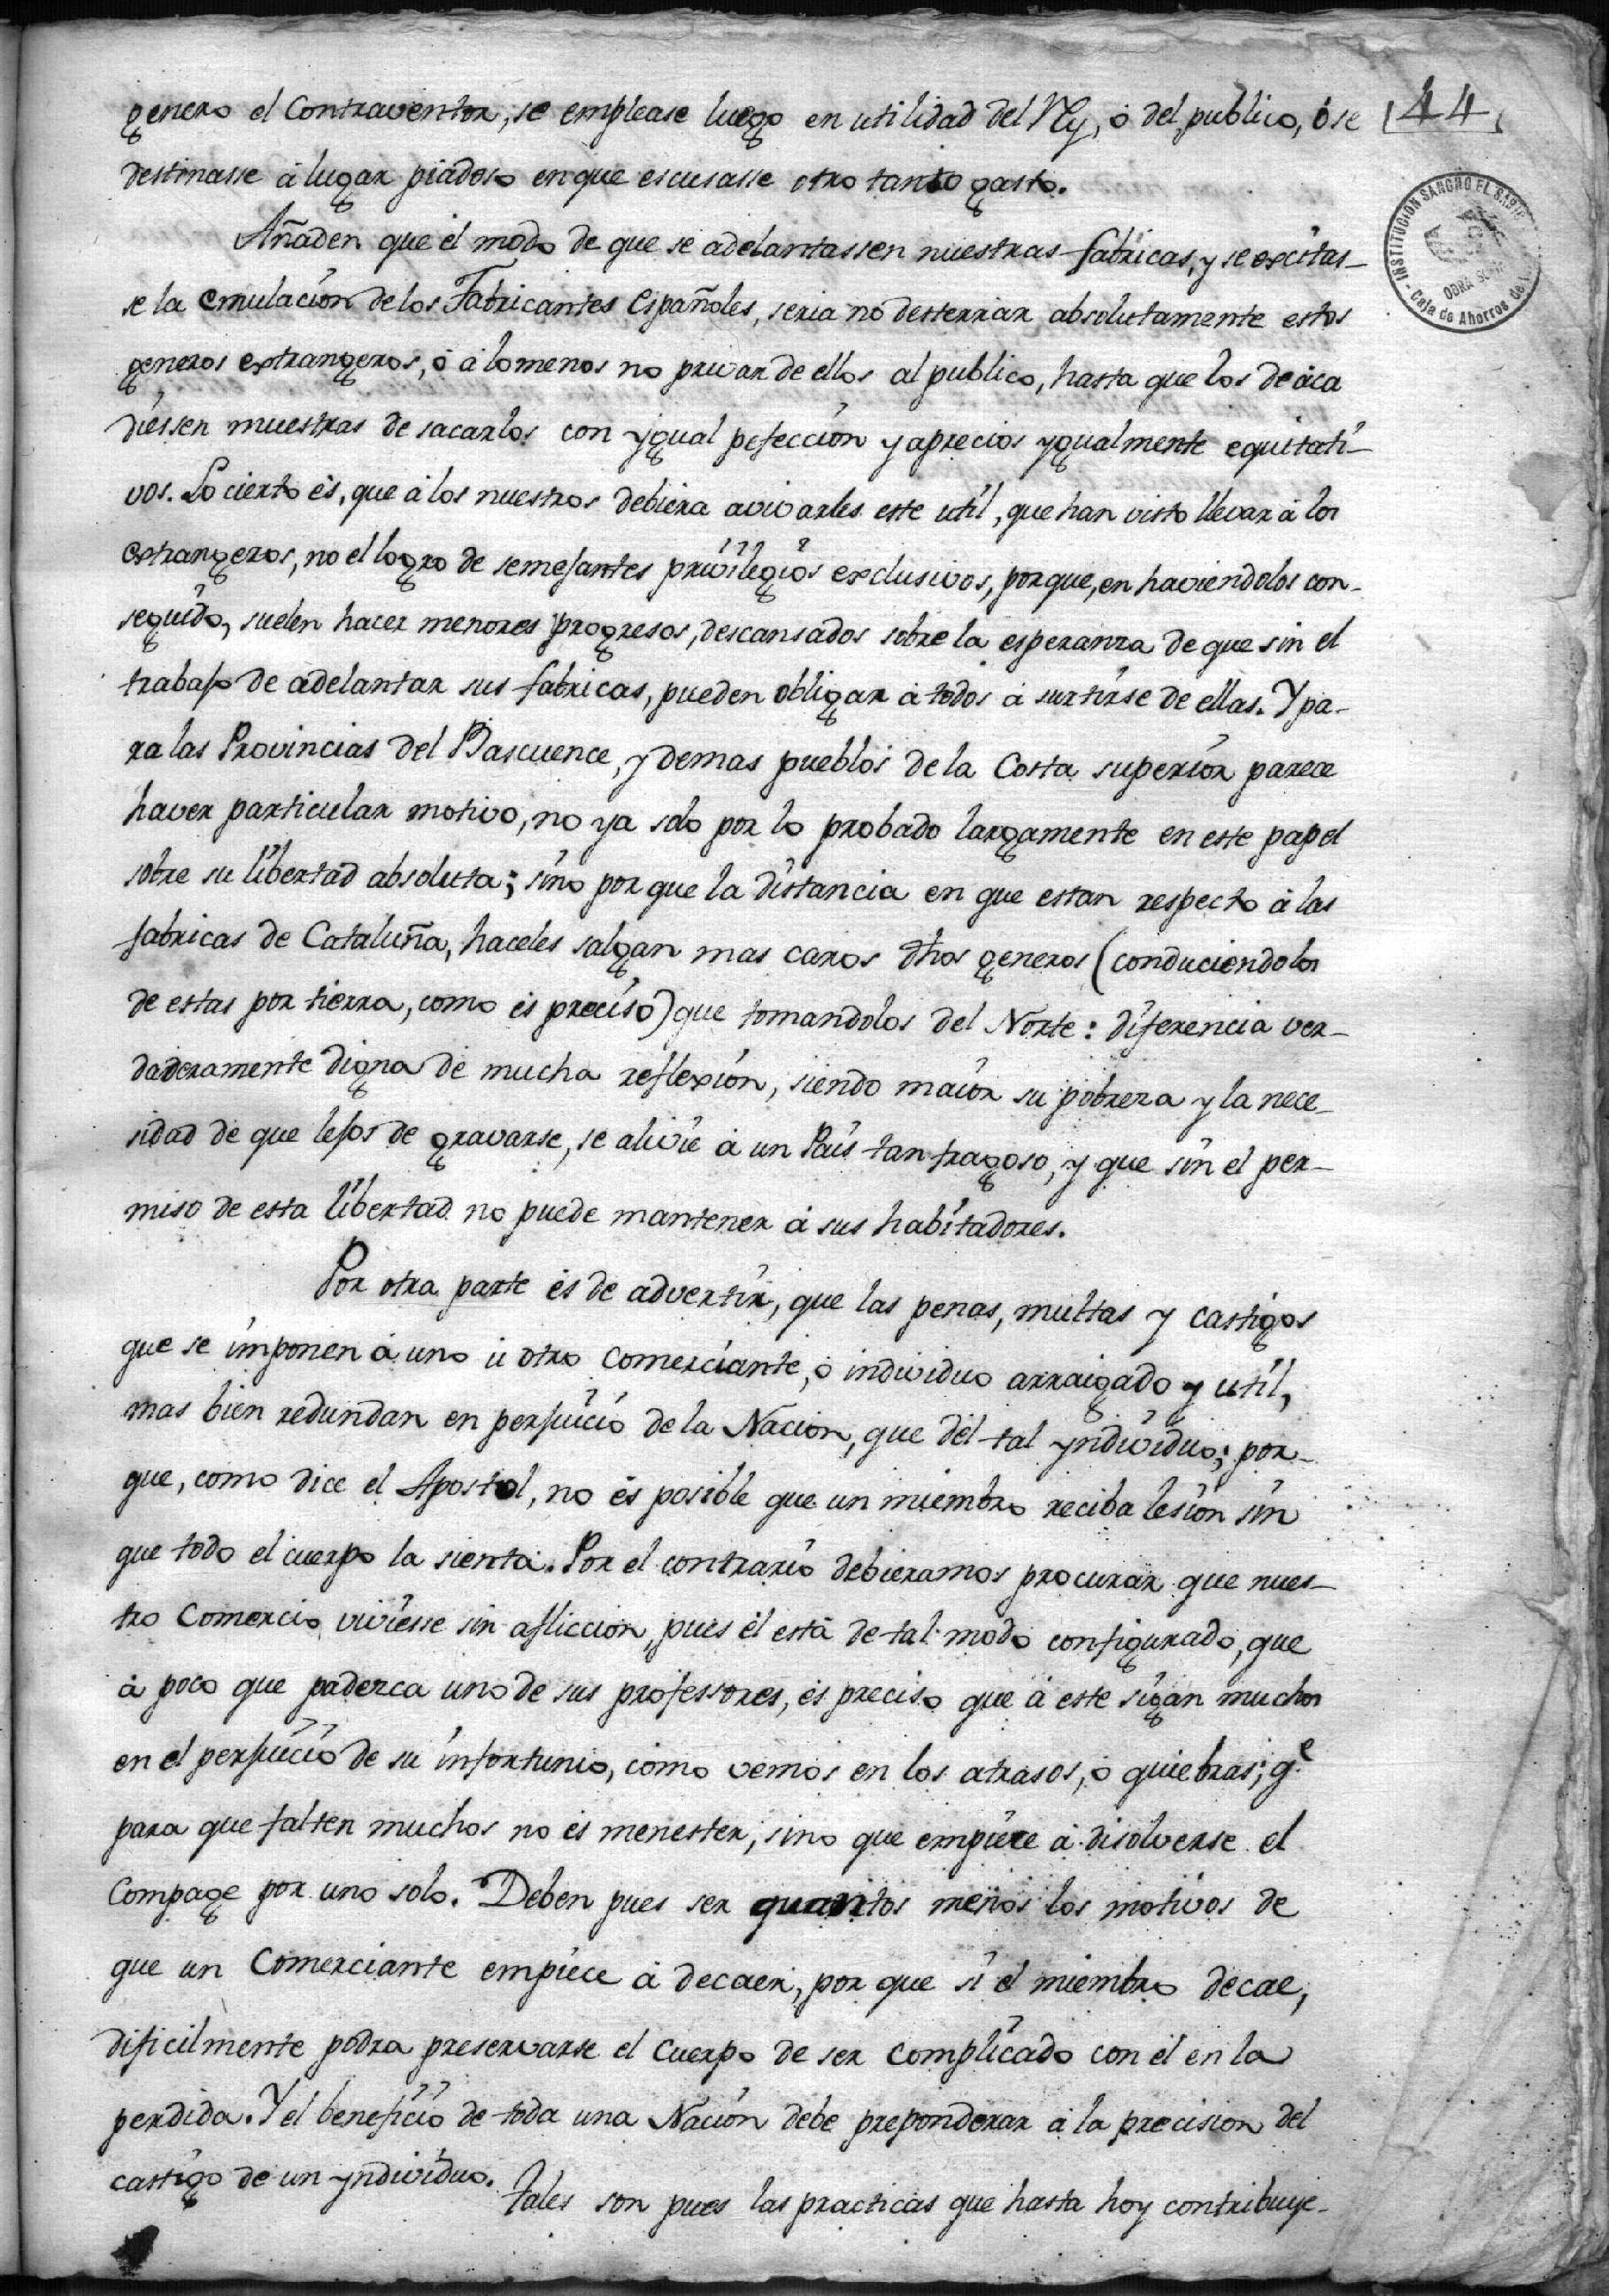 genero el Contraventor, se emplease luego en utilidad del Rey, ó del publico, ó se
44
destinasse à lugar piàdoso en que escusasse otro tanto gasto.
INSTITUCION SANCHO EL SABIO
OBRA SOCIAL
Caja de Ahorros de
Añaden que él modo de que se adelantassen nuestras fabricas, y se excitas-
se la emulacion de los Fabricantes Españoles, seria no desterrar absolutamente estos
generos extrangeros, ó à lo menos no privar de ellos al publico, hasta que los de àca
diessen muestras de sacarlos con ygual pefeccion y à precios ygualmente equitati-
vos. Lo cierto és, que à los nuestros debiera avivarles este util, que han visto llevar à los
extrangeros, no el logro de semejantes privilegios exclusivos, porque, en haviendolos con-
seguido, suelen hacer menores progresos, descansados sobre la esperanza de que sin el
trabajo de adelantar sus fabricas, pueden obligar à todos à surtirse de ellas. Y pa-
ra las Provincias del Bascuence, y demas pueblos de la Costa superior parece
haver particular motivo, no ya solo por lo probado largamente en este papel
sobre su libertad absoluta; sino por que la distancia en que estan respecto à las
fabricas de Cataluña, haceles salgan mas caros dhos generos (conduciendolos
de estas por tierra, como és preciso) que tomandolos del Norte: diferencia ver-
daderamente digna de mucha reflexion, siendo maior su pobreza y la nece-
sidad de que lejos de gravarse, se alivie à un Pais tan fragoso, y que sin el per-
miso de esta libertad no puede mantener à sus habitadores.
Por otra parte és de advertir, que las penas, multas y castigos
que se imponen à uno ù otro Comerciante, ó individuo arraigado y util,
mas bien redundan en perjuicio de la Nacion, que dél tal yndividuo; por-
que, como dice el Apostol, no és posible que un miembro reciba lesion sin
que todo el cuerpo la sienta. Por el contrario debieramos procurar que nues-
tro Comercio viviesse sin afliccion, pues él està de tal modo configurado, que
à poco que padezca uno de sus professores, és preciso que à este sigan muchos
en el perjuicio de su infortunio, como vemos en los atrasos, ó quiebras; q.e
para que falten muchos no és menester, sino que empieze à disolverse el
Compage por uno solo. Deben pues ser quantos menos los motivos de
que un Comerciante empiece à decaer, por que si el miembro decae,
dificilmente podra preservarse el Cuerpo de ser complicado con él en la
perdida. Y el beneficio de toda una Nacion debe preponderar à la precision del
castigo de un yndividuo.
Tales son pues las practicas que hasta hoy contribuye-